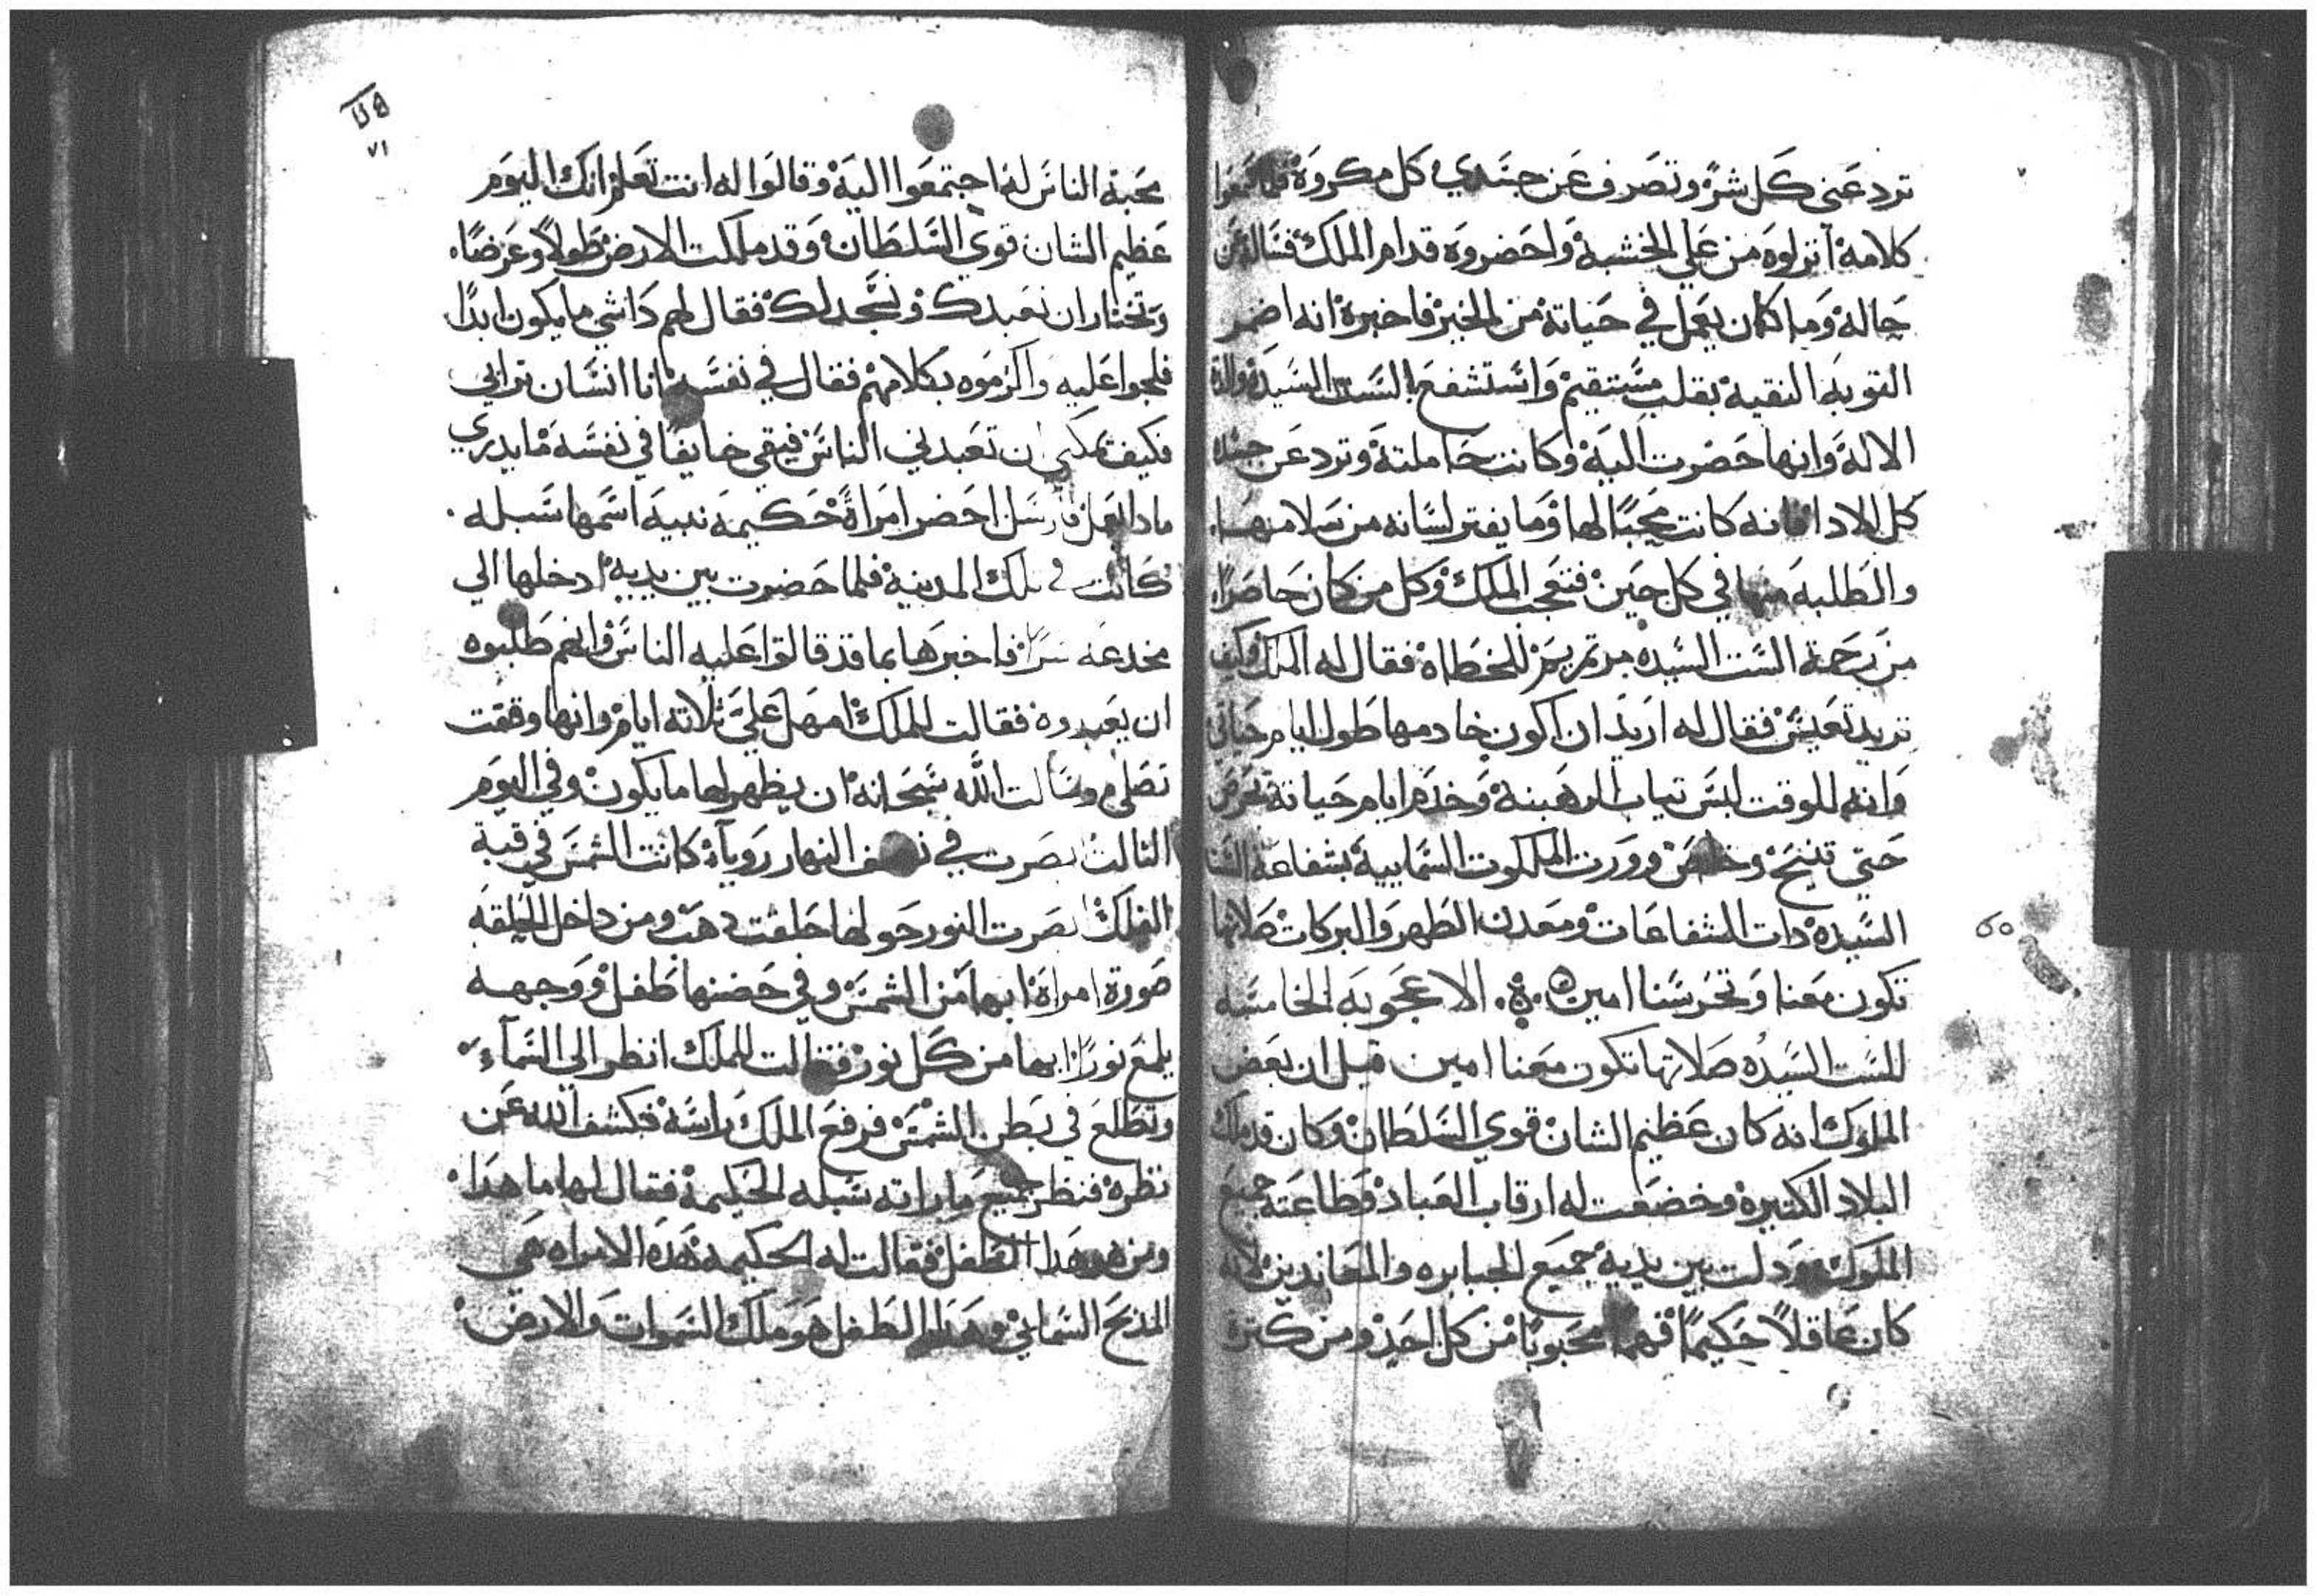 ترد عني كل شر وتصرف عن جسدي كل مكروه فلما سمعوا
كلامه انزلوه من علي الخشبه واحضروه قدام الملك فساله عن
حاله وما كان يعمل في حياته من الخير فاخبره انه اضمر
التوبه النقيه بقلب مستقيم واستشفع بالست السيده والدة
الاله وانها حضرت اليه وكانت حاملته وترد عن جسده
كل الادا فانه كانت محبا لها وما يفتر لسانه من سلامها
والطلبه منها في كل حين فتعجب الملك وكل من كان حاضرا
من رحمة الست السيده مرتمريم للخطاه فقال له الملك وكيف
تريد تعيش فقال له اريد ان اكون خادمها طول ايام حياتي
وانه للوقت لبس تياب الرهبنة وخدم ايام حياته
حتي تنيح وخلص وورت الملكوت السماييه بشفاعة الست
السيده دات الشفاعات ومعدن الطهر والبركات صلاتها
تكون معنا وتحرسنا امين الاعجوبه الخامسه
للست السيده صلاتها تكون معنا امين قيل ان بعض
الملوك انه كان عظيم الشان قوي السلطان وكان قد ملك
البلاد الكتيره وخضعت له ارقاب العباد وطاعته جميع
الملوك ودلت بين يديه جميع الجبابره والمعاندين لانه
كان عاقلا حكيما فهما محبوبا من كل احد ومن كترة
٧١
محبة الناس له اجتمعوا اليه وقالوا له انت تعلم انك اليوم
عظيم الشان قوي السلطان وقد ملكت الارض طولا وعرضا
وتختار ان نعبدك ونسجد لك فقال لهم داشي ما يكون ابدا
فلجوا عليه واكرموه بكلامهم فقال في نفسه انا انسان ترابي
فكيف يمكن ان تعبدني الناس فبقي خايفا في نفسه ما يدري
مادا يفعل فارسل احضر امراة حكيمه نبيه اسمها سبله
كانت في تلك المدينه فلما حضرت بين يديه ادخلها الي
مخدعه سرا فاخبرها بما قد قالوا عليه الناس وانهم طلبوه
ان يعبدوه فقالت للملك امهل علي تلاته ايام وانها وقفت
تصلي وسالت الله سبحانه ان يظهر لها ما يكون وفي اليوم
التالت ابصرت في نصف النهار رويآة كانت الشمس في قبة
الفلك ابصرت النور حولها حلقت دهب ومن داخل الحلقه
صورة امراة ابها من الشمس وفي حضنها طفل ووجهه
يلمع نورا ابها من كل نور فقالت للملك انظر الي السمآء
وتطلع في بطن الشمس فرفع الملك راسه فكشف الله عن
نظره فنظر جميع ما راته سبله الحكيمه فقال لها ما هدا
ومن هو هدا الطفل فقالت له الحكيمه هده الامراه هي
المدبح السمايي وهدا الطفل هو ملك السموات والارض